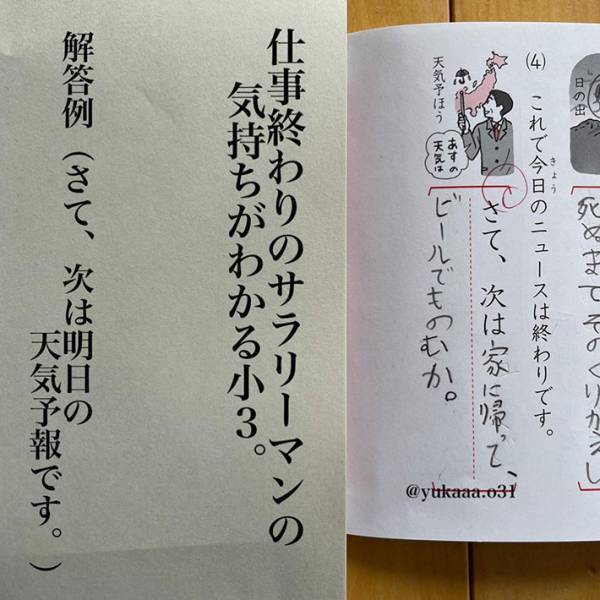 仕事終わりのサラリーマンの
気持ちがわかる小3。
解答例（さて、次は明日の
天気予報です。）
日の出
死ぬまでそのくりかえし
(4) これで今日のニュースは終わりです。
きょう
天気予ほう
あすの
天気は
さて、次は家に帰って、
ビールでものむか。
@yukaaa.o31